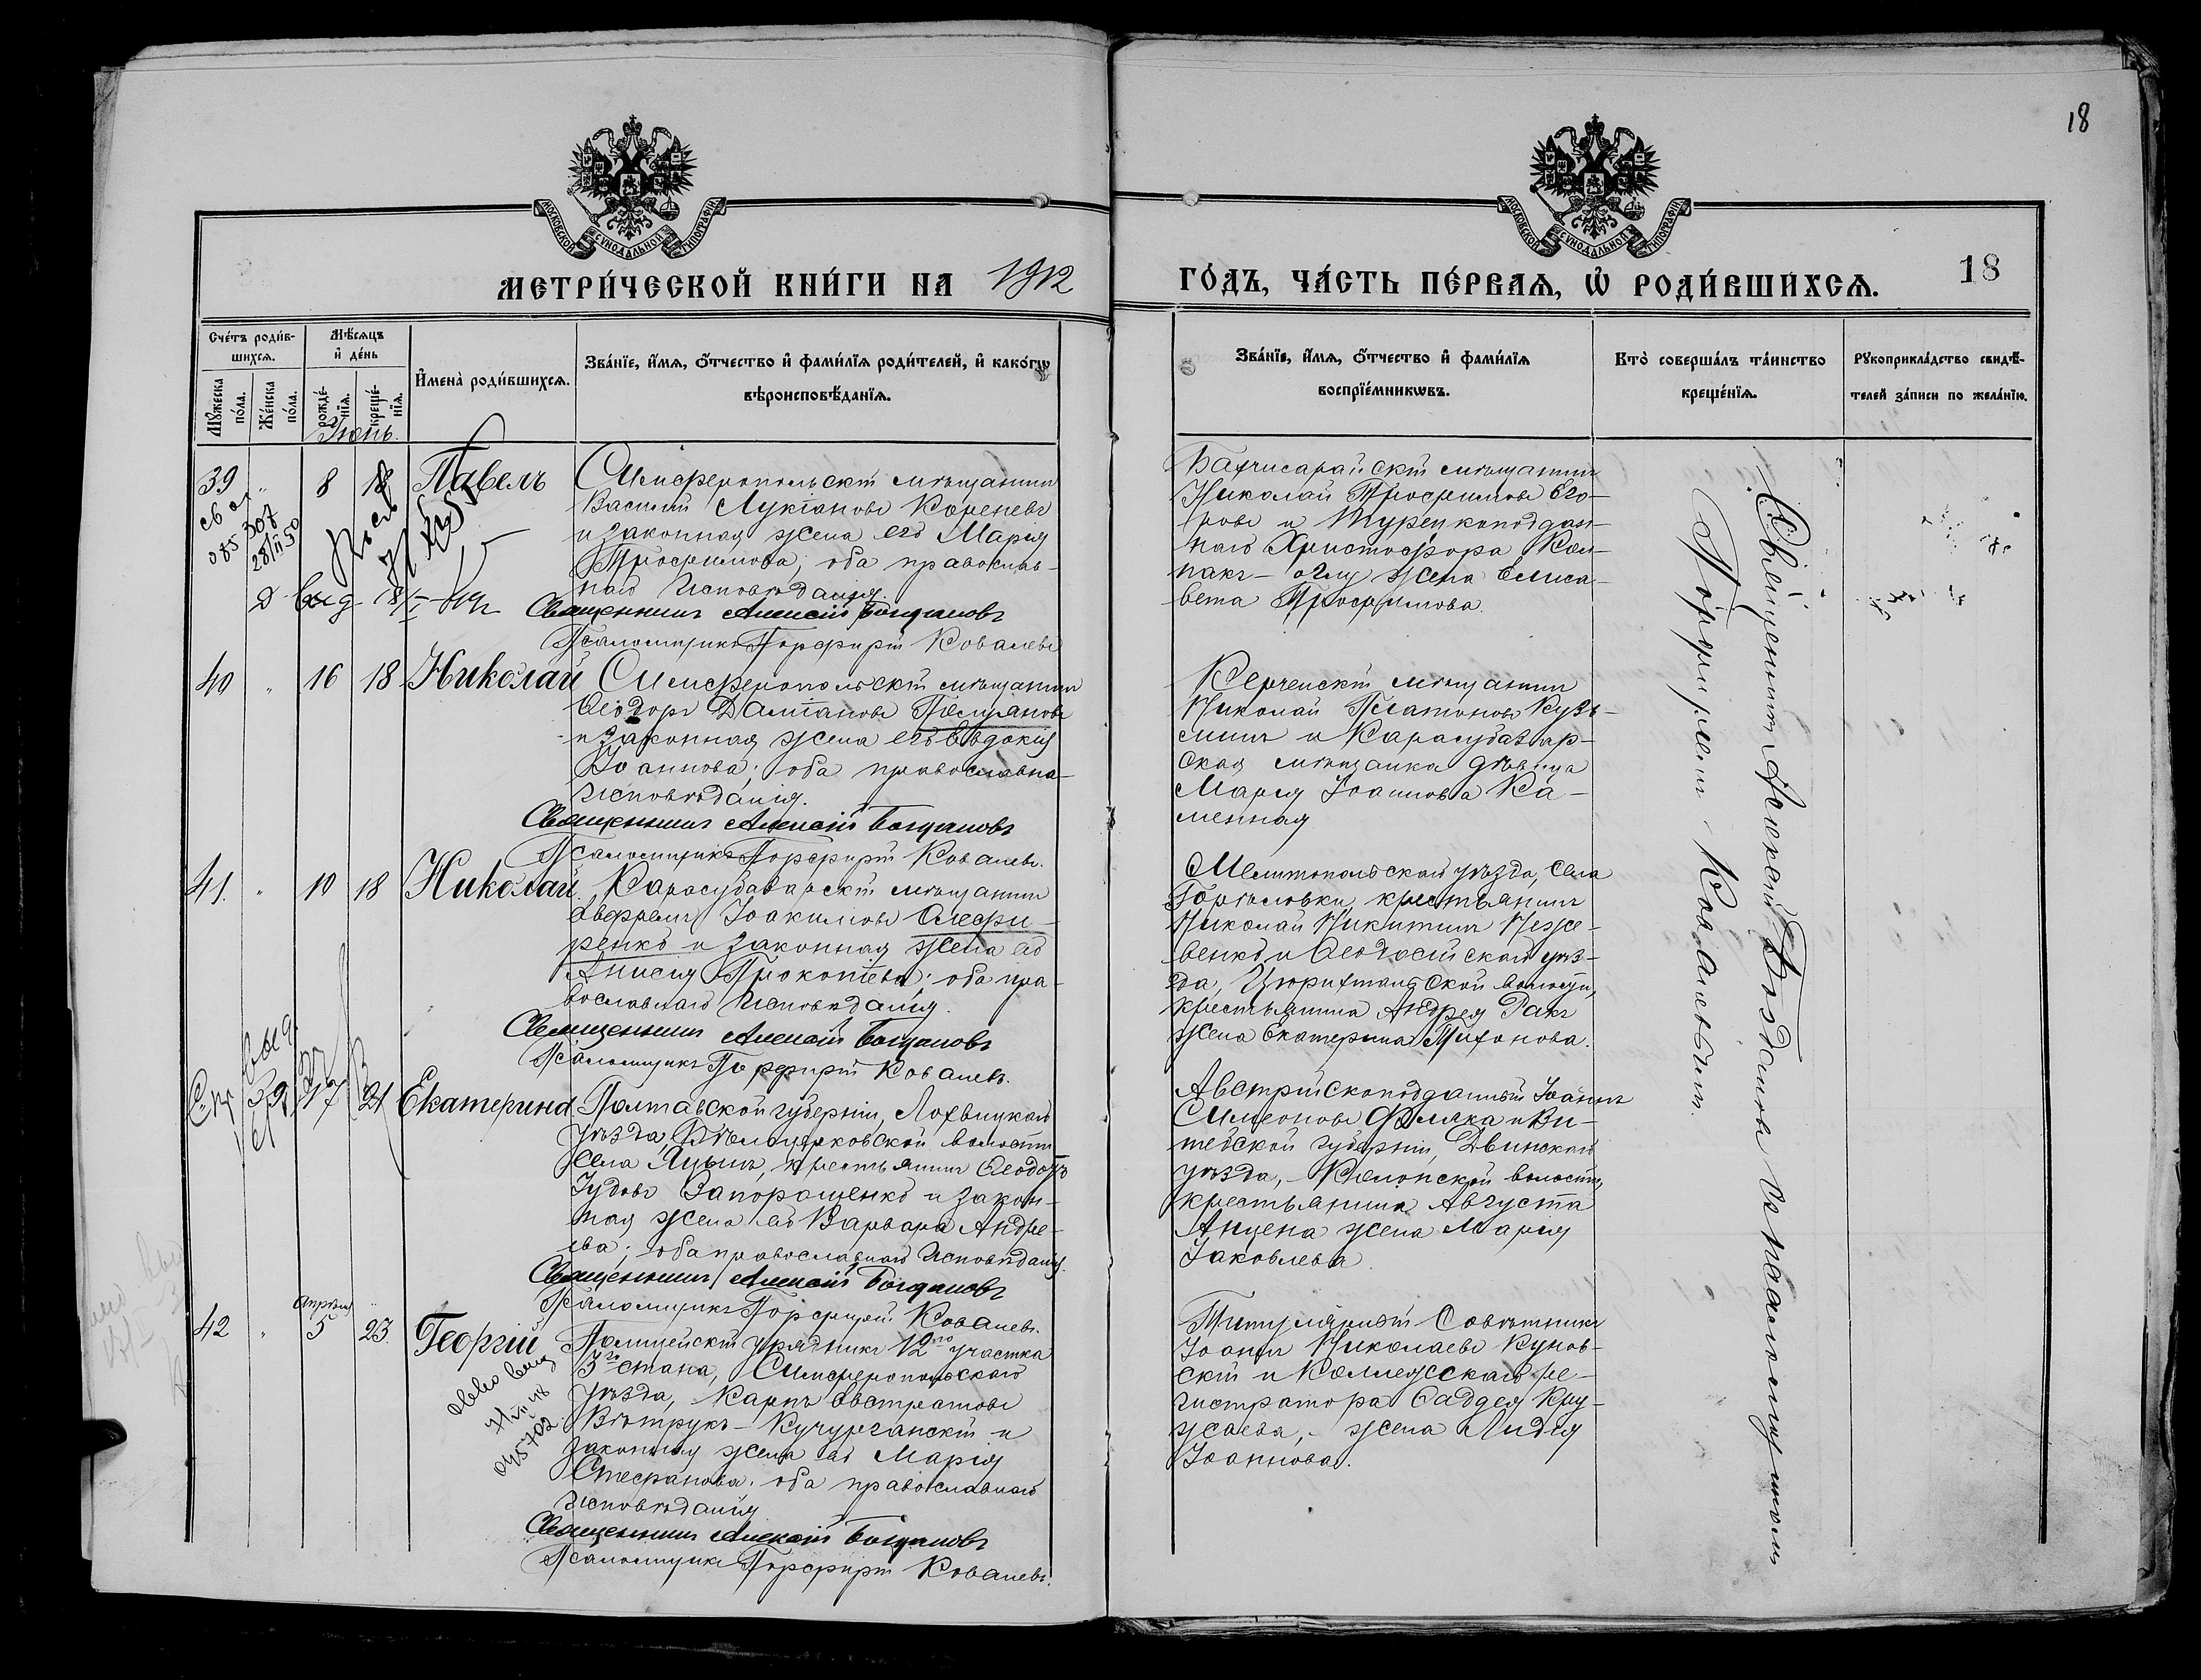 18
МОСКОВСКОЙ СѴНОДАЛЬНОЙ ТИПОГРАФІИ
МОСКОВСКОЙ СѴНОДАЛЬНОЙ ТИПОГРАФІИ
МЕТРИ́ЧЕСКОЙ КНИ́ГИ НА 1912
ГО́ДЪ, ЧА́СТЬ ПЕ́РВАѦ, Ѡ҆ РОДИ́ВШИХСѦ. 18
Сче́тъ роди́в-
шихсѧ.
Мꙋ́жеска по́ла.
Же́нска по́ла.
Мѣ́сѧцъ
и҆ де́нь
рожде́-нїѧ.
креще́-нїѧ.
И҆мена̀ роди́вшихсѧ.
Зва́нїе, и҆́мѧ, ѻ҆́тчество и҆ фами́лїѧ роди́телей, и҆ како́гѡ
вѣроисповѣ́данїѧ.
Зва́нїе, и҆́мѧ, ѻ҆́тчество и҆ фами́лїѧ
воспрїе́мникѡвъ.
Кто̀ соверша́лъ та́инство
креще́нїѧ.
Рꙋкоприкла́дство свидѣ́-
телей за́писи по жела́нїю.
Іюнь.
39 " 8 18 Павелъ
Симферопольскій мѣщанинъ
Василій Лукіановъ Кореневъ
и законная жена его Марія
Трофимова, оба православ-
наго исповѣданія.
Священникъ Алексій Богдановъ
Псаломщикъ Порфирій Ковалевъ
Бахчисарайскій мѣщанинъ
Николай Трофимовъ Его-
ровъ и Турецкоподдан-
наго Христофора Кол-
пакъ-оглу жена Елиса-
вета Трофимова.
085307
28/II 50
40 " 16 18 Николай
Симферопольскій мѣщанинъ
Ѳеодоръ Даміановъ
и законная жена его Евдокія
Іоаннова; оба православна-
исповѣданія.
Священникъ Алексій Богдановъ
Псаломщикъ Порфирій Ковалевъ.
Керченскій мѣщанинъ
Николай Платоновъ Кузь-
минъ и Карасубазар-
ская мѣщанка дѣвица
Марія Іоаннова Ка-
менная
41. " 10 18 Николай.
Карасубазарскій мѣщанинъ
Іоакимовъ Олефи-
ренко и законная жена его
Анисія Прокопіева; оба пра-
вославнаго исповѣданія.
Священникъ Алексій Богдановъ
Псаломщикъ Порфирій Ковалевъ.
Мелитопольскаго уѣзда, села
Горѣловки, крестьянинъ
Николай Никитинъ Неже-
венко и Ѳеодосійскаго уѣз-
да, Цюрихтальской волости,
крестьянина Андрея Ракъ
жена Екатерина Тихонова.
17 21 Екатерина
Полтавской губерніи, Лохвицкаго
уѣзда, Бѣлоцерковской волости
села Яцынъ, крестьянинъ Ѳеодоръ
Іудовъ Запорощенко и закон-
ная жена его Варвара Андре-
ева; оба православнаго исповѣданія.
Священникъ Алексій Богдановъ
Псаломщикъ Порфирій Ковалевъ.
Австрійскоподданный Іоаннъ
Симеоновъ Фляка и Ви-
тебской губерніи, Двинскаго
уѣзда, волости,
крестьянина Августа
Анцена жена Марія
Іаковлева.
Апрѣля
42 " 5 23. Георгій
Полицейскій урядникъ 12го участка
3го стана, Симферопольскаго
уѣзда, Карпъ Евстратовъ
Вѣтрукъ-Кучурганскій и
законная жена его Марія
Стефанова; оба православнаго
исповѣданія
Священникъ Алексій Богдановъ
Псаломщикъ Порфирій Ковалевъ.
Титулярный Совѣтникъ
Іоаннъ Николаевъ Кунов-
скій и Коллежскаго ре-
гистратора Ѳаддея Кру-
жаева, жена Лидія
Іоаннова.
Священникъ Алексій Богдановъ съ псаломщикомъ
Порфиріемъ Ковалевымъ.